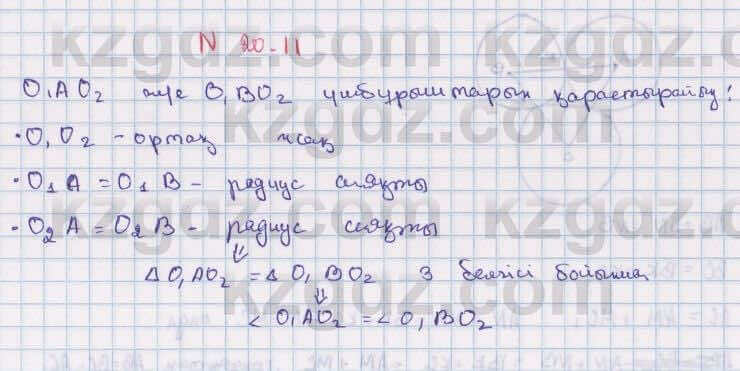 N 20-11
O₁AO₂ және O₁BO₂ үшбұрыштарын қарастырайық:
• O₁O₂ - ортақ жақ
• O₁A = O₁B - радиус сияқты
• O₂A = O₂B - радиус сияқты
⇓
△O₁AO₂ = △O₁BO₂ 3 белгісі бойынша
⇓
∠O₁AO₂ = ∠O₁BO₂
kzgdz.com